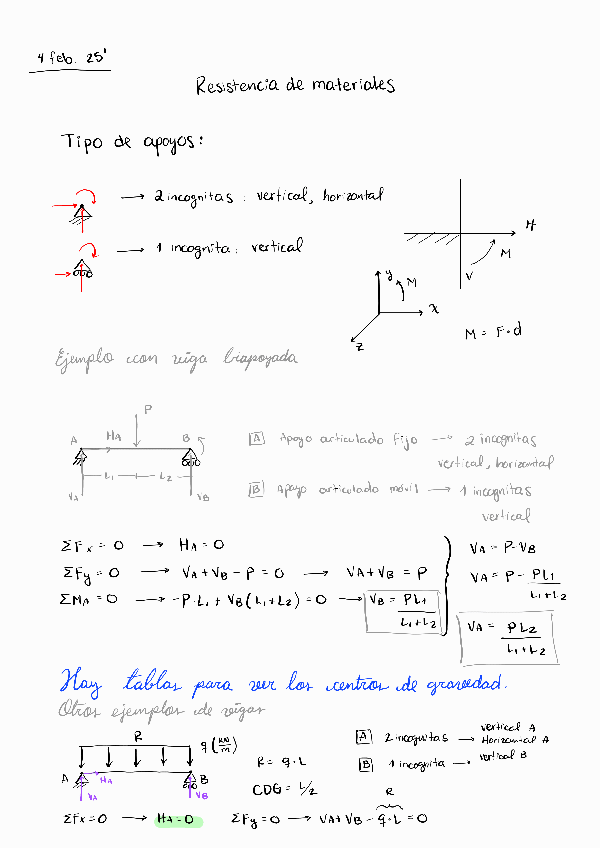 4 feb. 25'
Resistencia de materiales
Tipo de apoyos:
→ 2 incognitas : vertical, horizontal
→ 1 incognita : vertical
H
M
V
y
M
x
z
M = F·d
Ejemplo con viga biapoyada
P
A
HA
B
L1
L2
VA
VB
A Apoyo articulado fijo --→ 2 incognitas
vertical, horizontal
B Apoyo articulado móvil → 1 incognitas
vertical
ΣFx = 0 → HA = 0
ΣFy = 0 → VA + VB - P = 0 → VA + VB = P
ΣMA = 0 → -P·L1 + VB (L1 + L2) = 0 → VB = PL1 / L1+L2
VA = P - VB
VA = P - PL1 / L1+L2
VA = PL2 / L1+L2
Hay tablas para ver los centros de gravedad.
Otros ejemplos de vigas
R
q (kN/m)
A
HA
B
VA
VB
R = q·L
CDG = L/2
A 2 incognitas → vertical A
Horizontal A
B 1 incognita → vertical B
R
ΣFx = 0 → HA = 0 ΣFy = 0 → VA + VB - q·L = 0